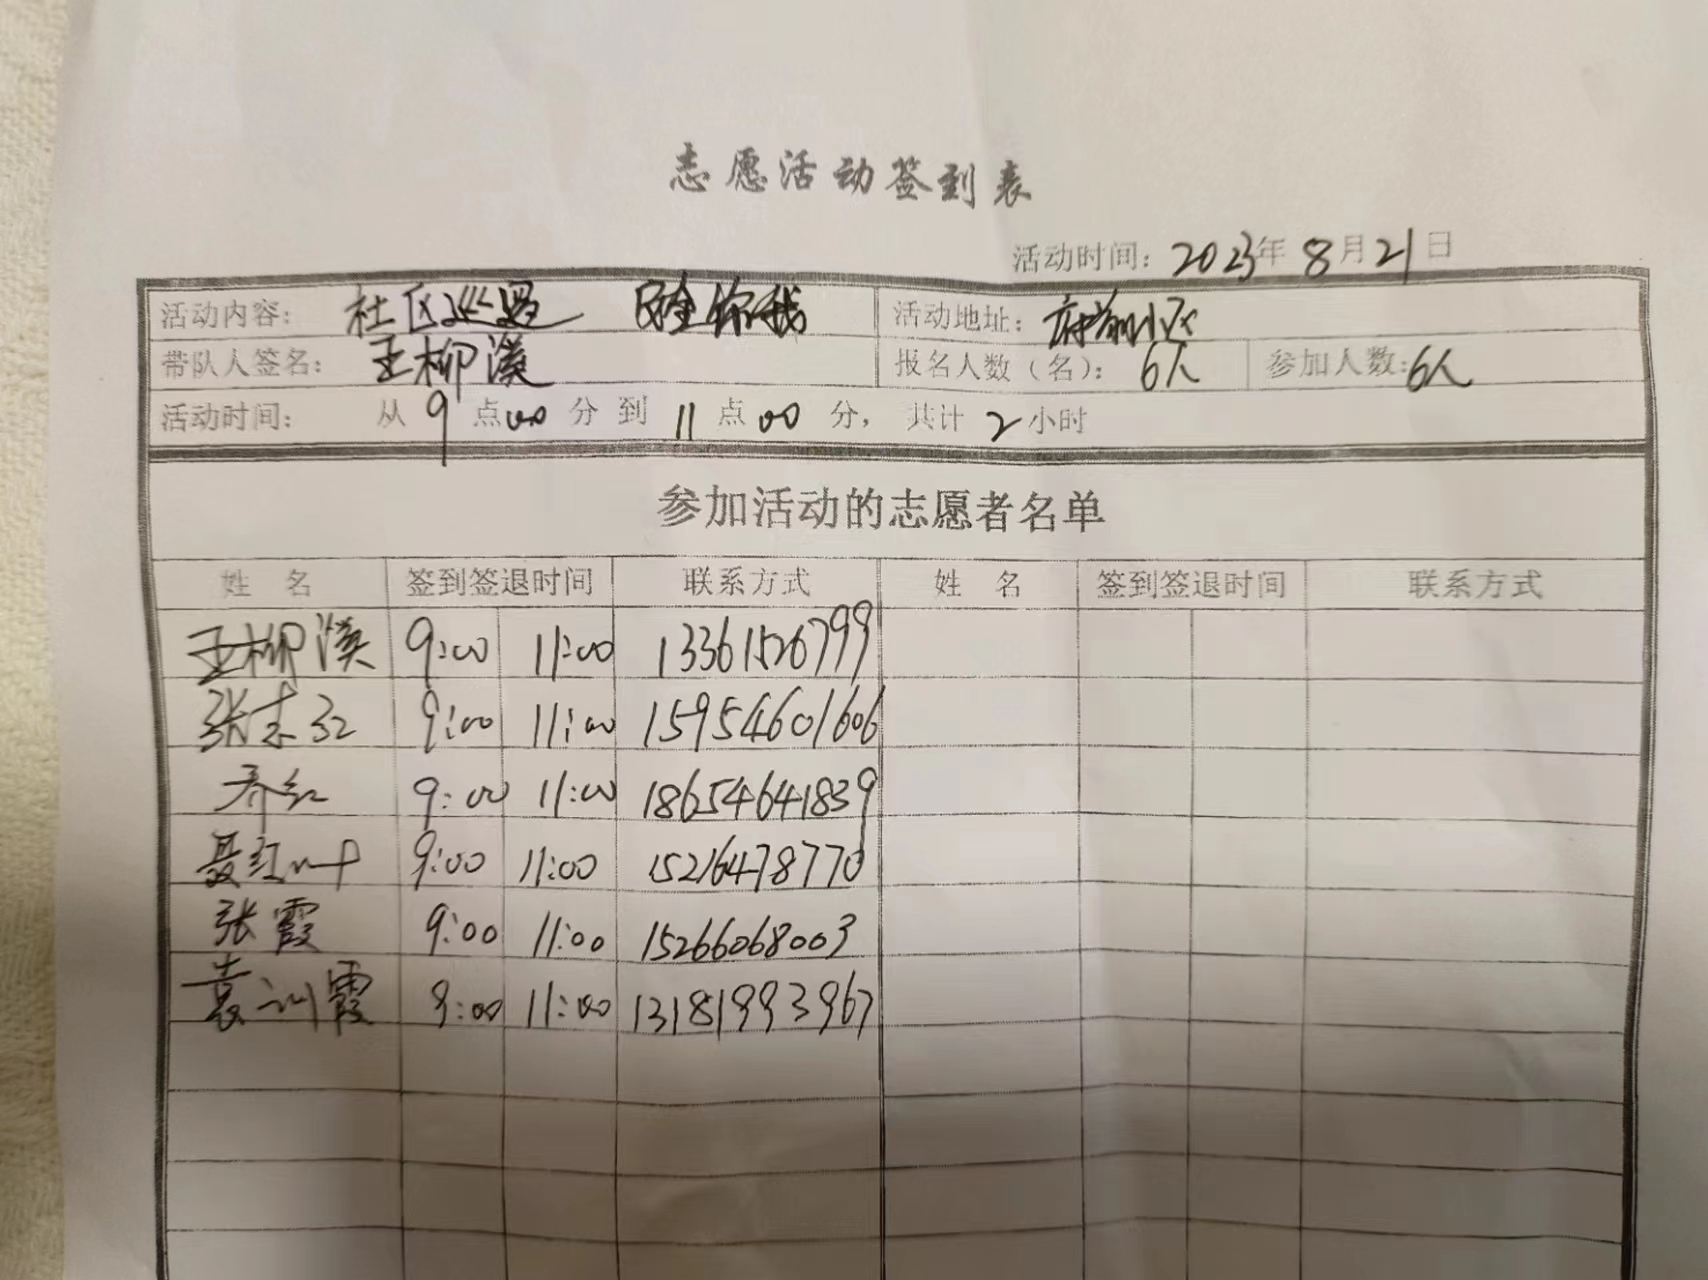 志愿活动签到表
活动时间：2023年8月21日
活动内容： 社区巡逻 你我 活动地址：府前小区
带队人签名： 王柳溪 报名人数（名）：6人 参加人数：6人
活动时间： 从9点00分到11点00分，共计2小时
参加活动的志愿者名单
姓 名 签到签退时间 联系方式 姓 名 签到签退时间 联系方式
王柳溪 9:00 11:00 13361526799
张 红 9:00 11:00 15954601606
乔红 9:00 11:00 18654641839
聂红叶 9:00 11:00 15216478770
张霞 9:00 11:00 15266068003
袁训霞 9:00 11:00 13181993967